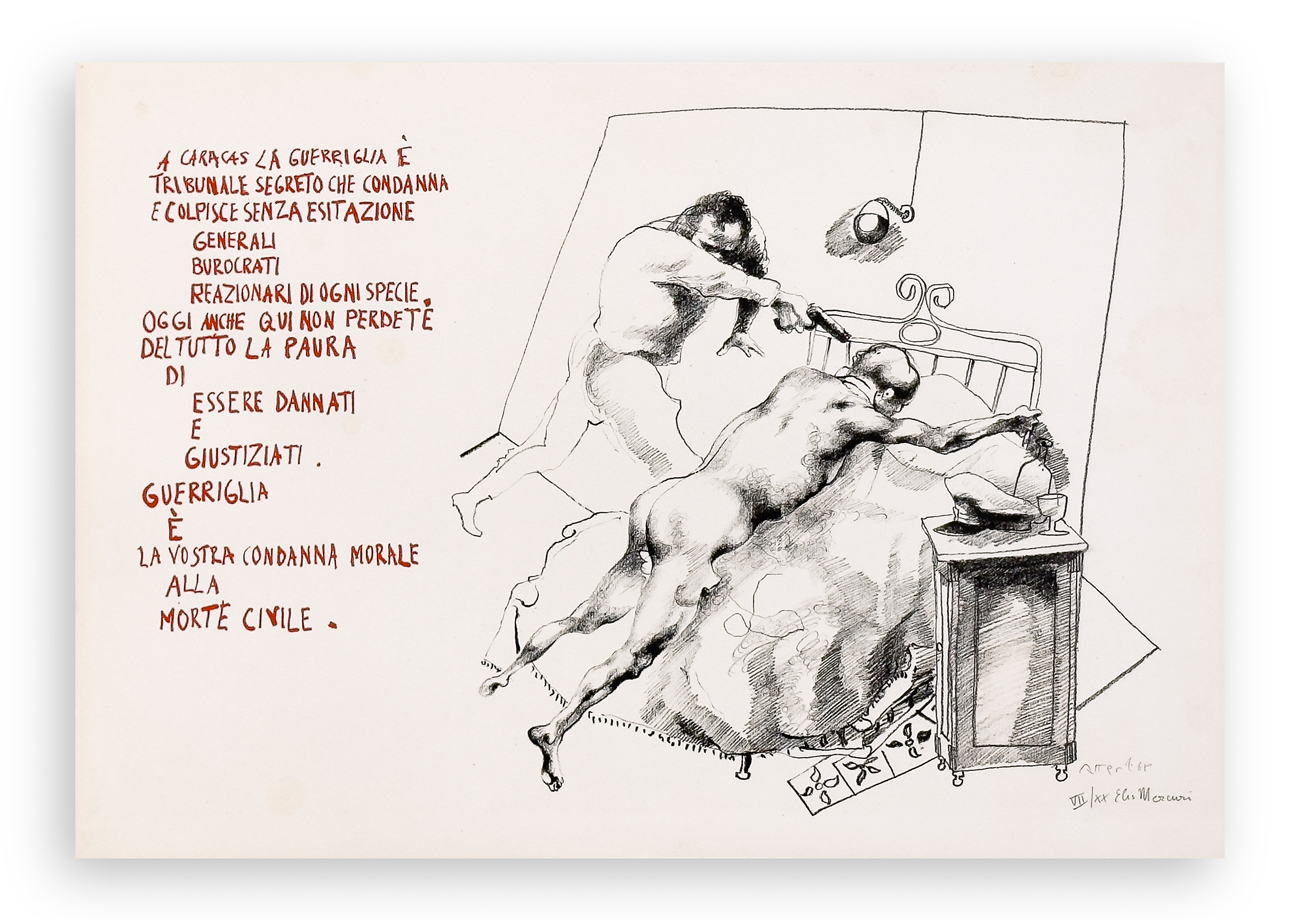 A CARACAS LA GUERRIGLIA È
TRIBUNALE SEGRETO CHE CONDANNA
E COLPISCE SENZA ESITAZIONE
GENERALI
BUROCRATI
REAZIONARI DI OGNI SPECIE.
OGGI ANCHE QUI NON PERDETE
DEL TUTTO LA PAURA
DI
ESSERE DANNATI
E
GIUSTIZIATI.
GUERRIGLIA
È
LA VOSTRA CONDANNA MORALE
ALLA
MORTE CIVILE.
VII/XX Elio Mercuri